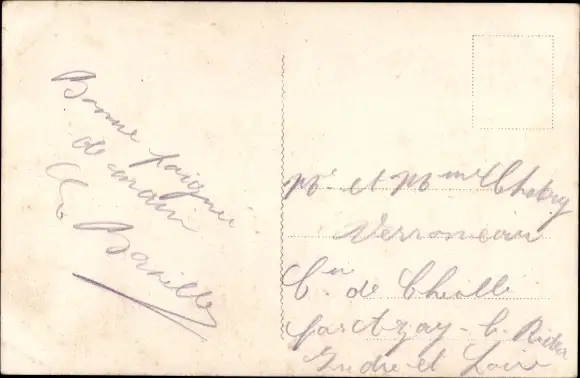 Bonne poignée
de main
Baville
Mr et Mme Chabry
Verroneau
Cne de Cheillé
par Azay-le-Rideau
Indre et Loire